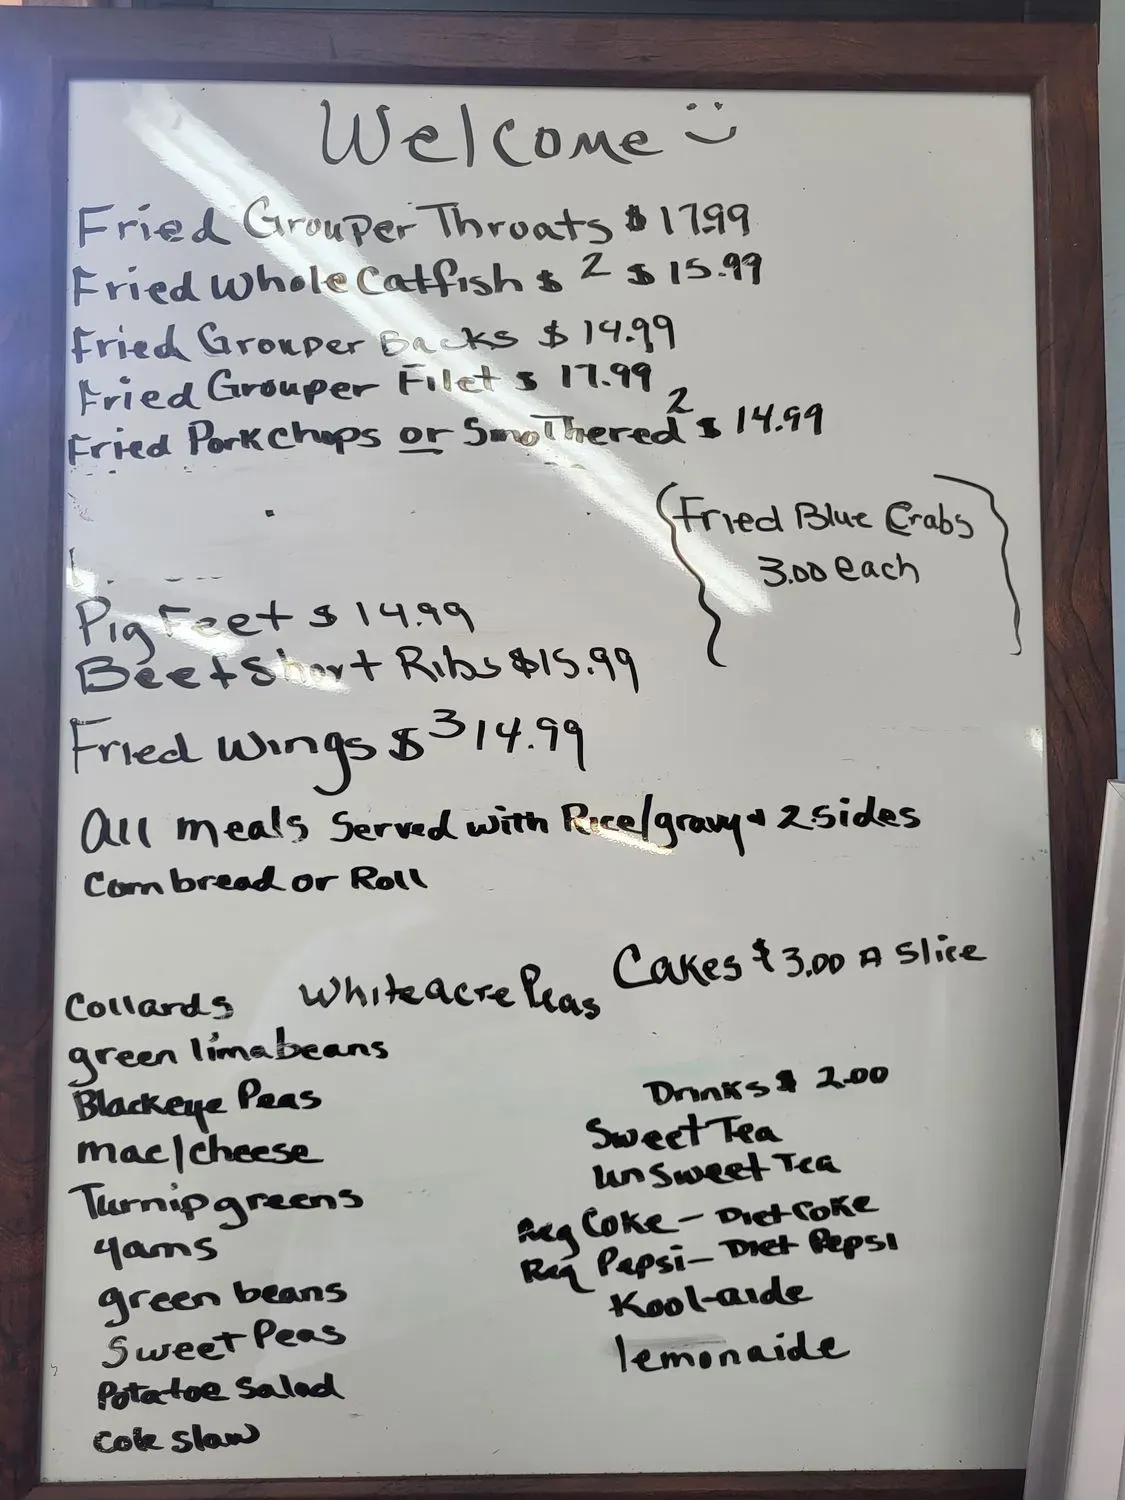 Welcome
Fried Grouper Throats $ 17.99
Fried Whole Catfish $ 2 $ 15.99
Fried Grouper Backs $ 14.99
Fried Grouper Filet $ 17.99
Fried Porkchops or Smothered 2 $ 14.99
Fried Blue Crabs
3.00 each
Pig Feet $ 14.99
Beef Short Ribs $15.99
Fried Wings $ 3 14.99
All meals Served with Rice/gravy & 2 sides
Cornbread or Roll
Cakes $ 3.00 A Slice
Collards
Whiteacre Peas
green limabeans
Blackeye Peas
mac/cheese
Turnip greens
yams
green beans
Sweet Peas
Potatoe Salad
Cole slaw
Drinks $ 2.00
Sweet Tea
Unsweet Tea
Reg Coke - Diet Coke
Reg Pepsi - Diet Pepsi
Kool-aide
lemonaide